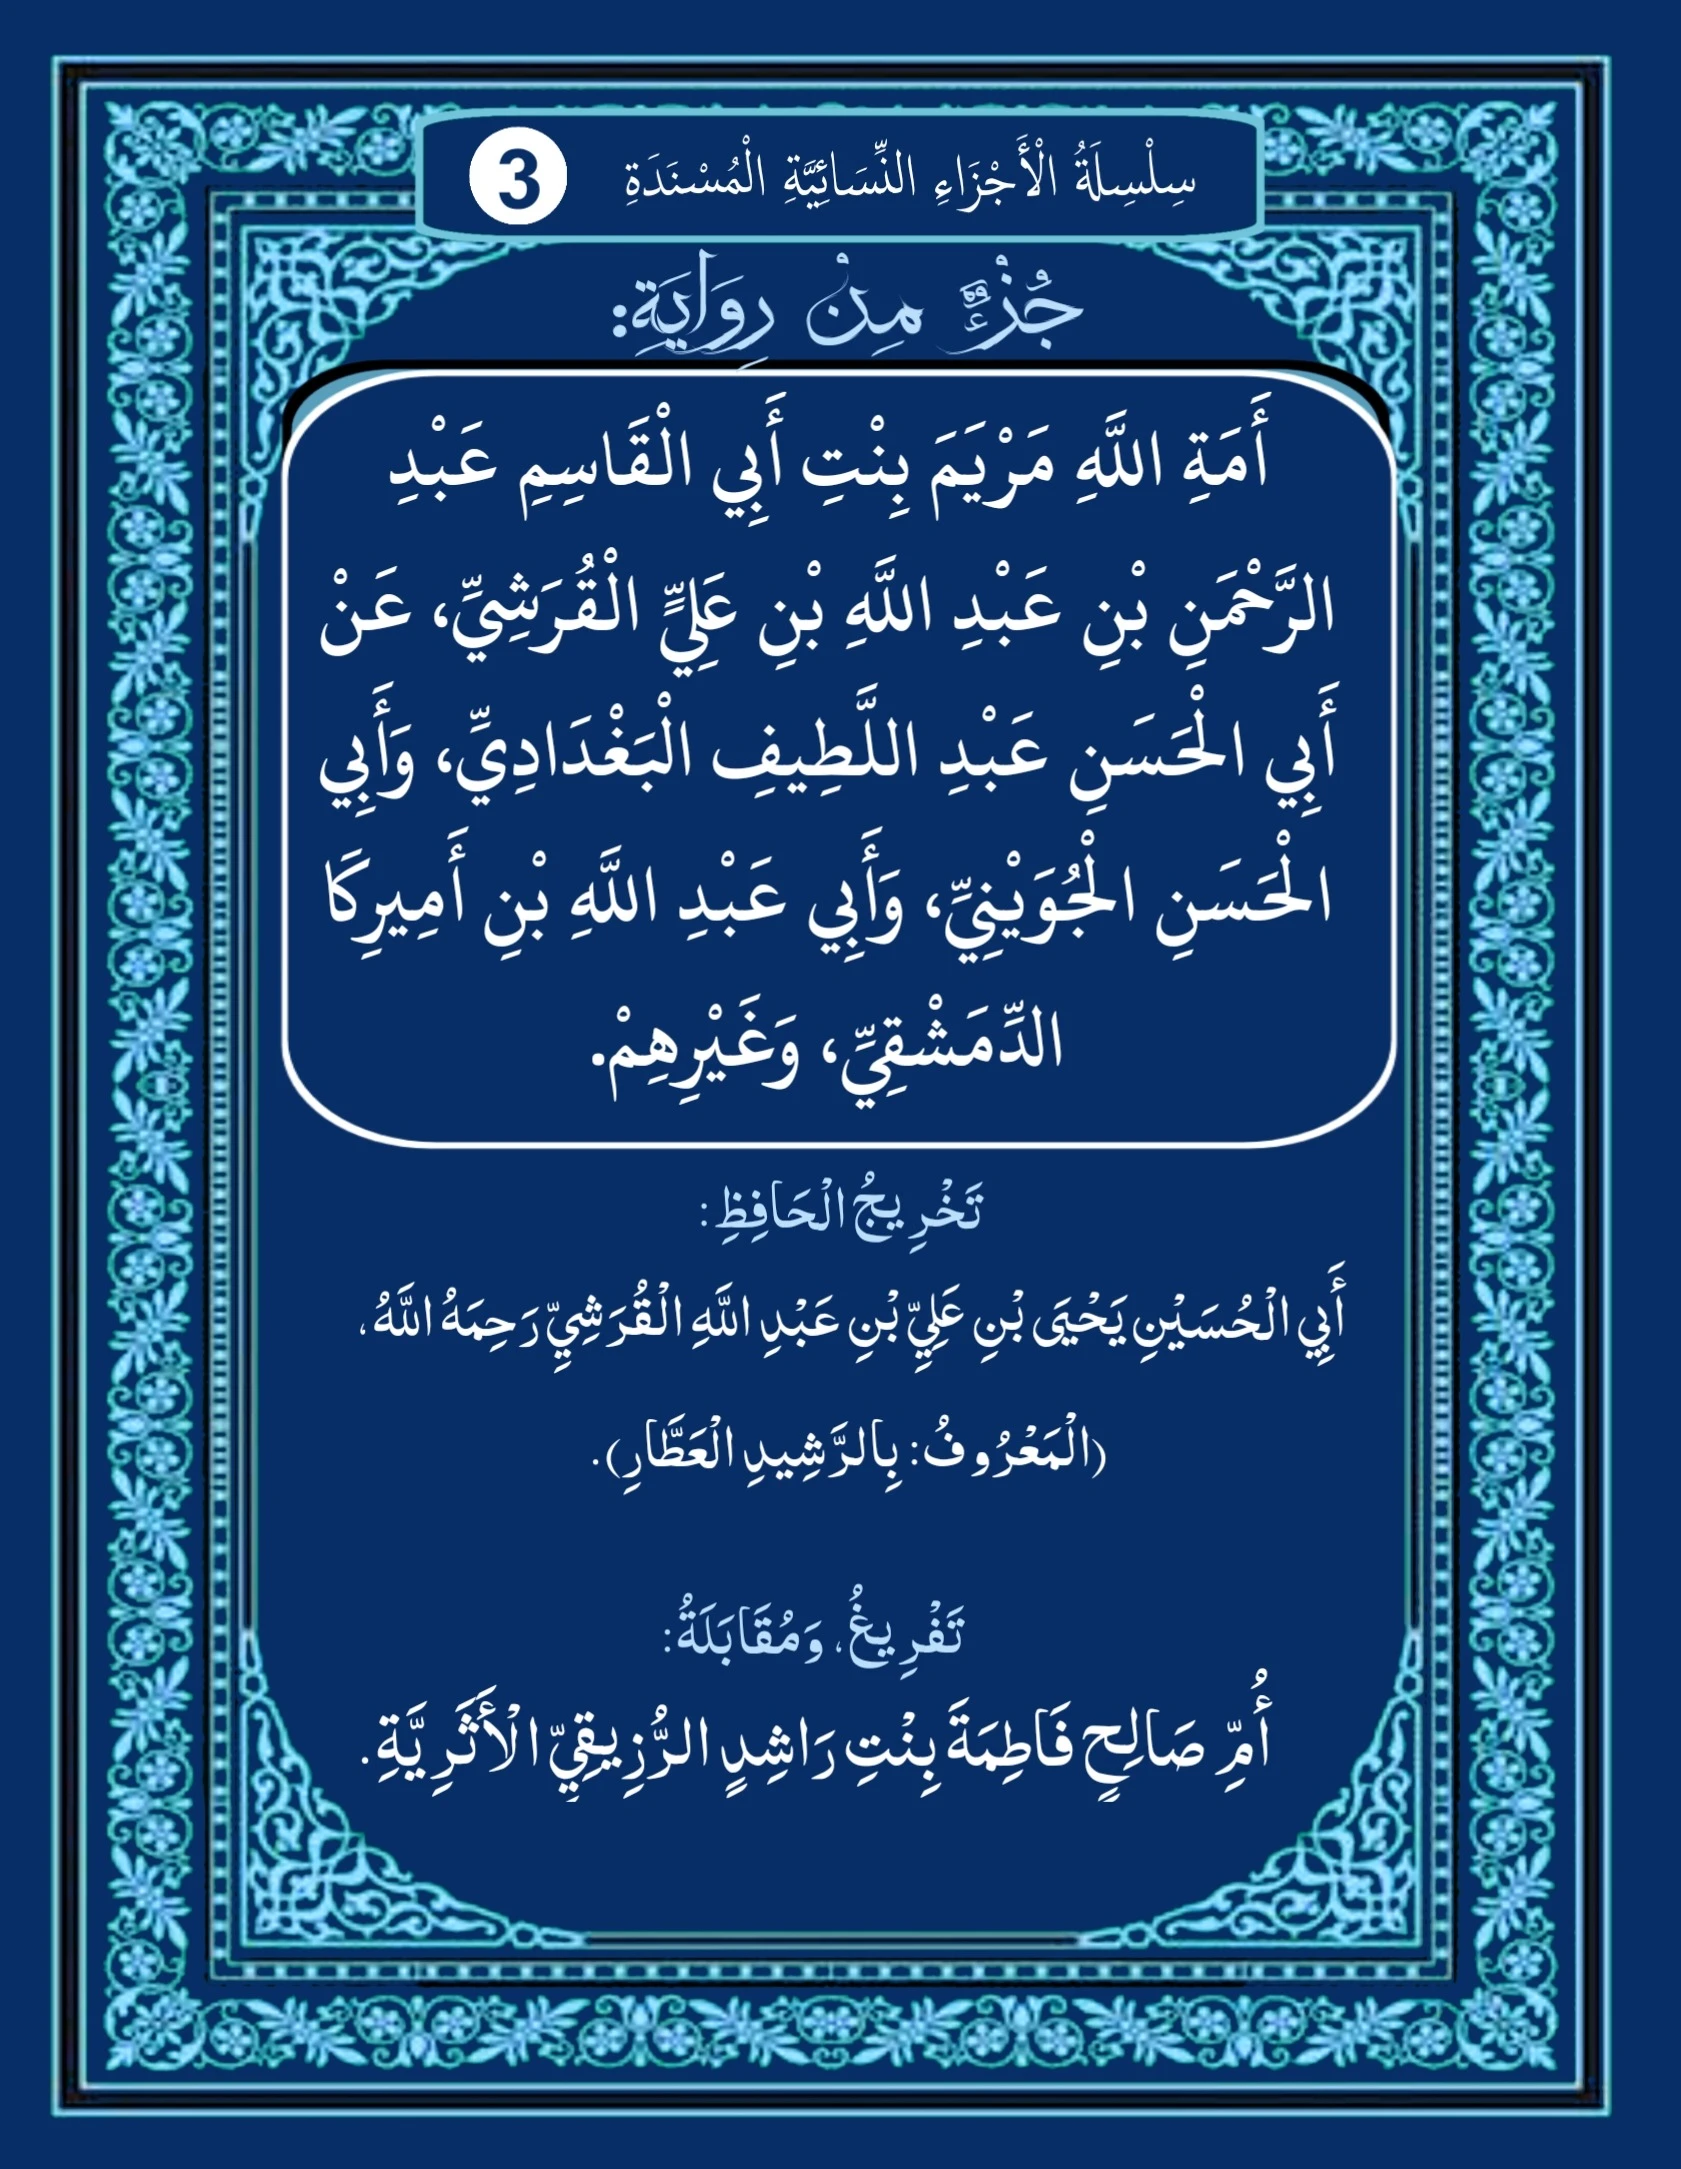 سِلْسِلَةُ الْأَجْزَاءِ النِّسَائِيَّةِ الْمُسْنَدَةِ 3
جُزْءٌ مِنْ رِوَايَةِ:
أَمَةِ اللَّهِ مَرْيَمَ بِنْتِ أَبِي الْقَاسِمِ عَبْدِ
الرَّحْمَنِ بْنِ عَبْدِ اللَّهِ بْنِ عَلِيٍّ الْقُرَشِيِّ، عَنْ
أَبِي الْحَسَنِ عَبْدِ اللَّطِيفِ الْبَغْدَادِيِّ، وَأَبِي
الْحَسَنِ الْجُوَيْنِيِّ، وَأَبِي عَبْدِ اللَّهِ بْنِ أَمِيرِكَا
الدِّمَشْقِيِّ، وَغَيْرِهِمْ.
تَخْرِيجُ الْحَافِظِ:
أَبِي الْحُسَيْنِ يَحْيَى بْنِ عَلِيِّ بْنِ عَبْدِ اللَّهِ الْقُرَشِيِّ رَحِمَهُ اللَّهُ،
(الْمَعْرُوفُ: بِالرَّشِيدِ الْعَطَّارِ).
تَفْرِيغُ، وَمُقَابَلَةُ:
أُمِّ صَالِحٍ فَاطِمَةَ بِنْتِ رَاشِدٍ الرُّزِيقِيِّ الْأَثَرِيَّةِ.